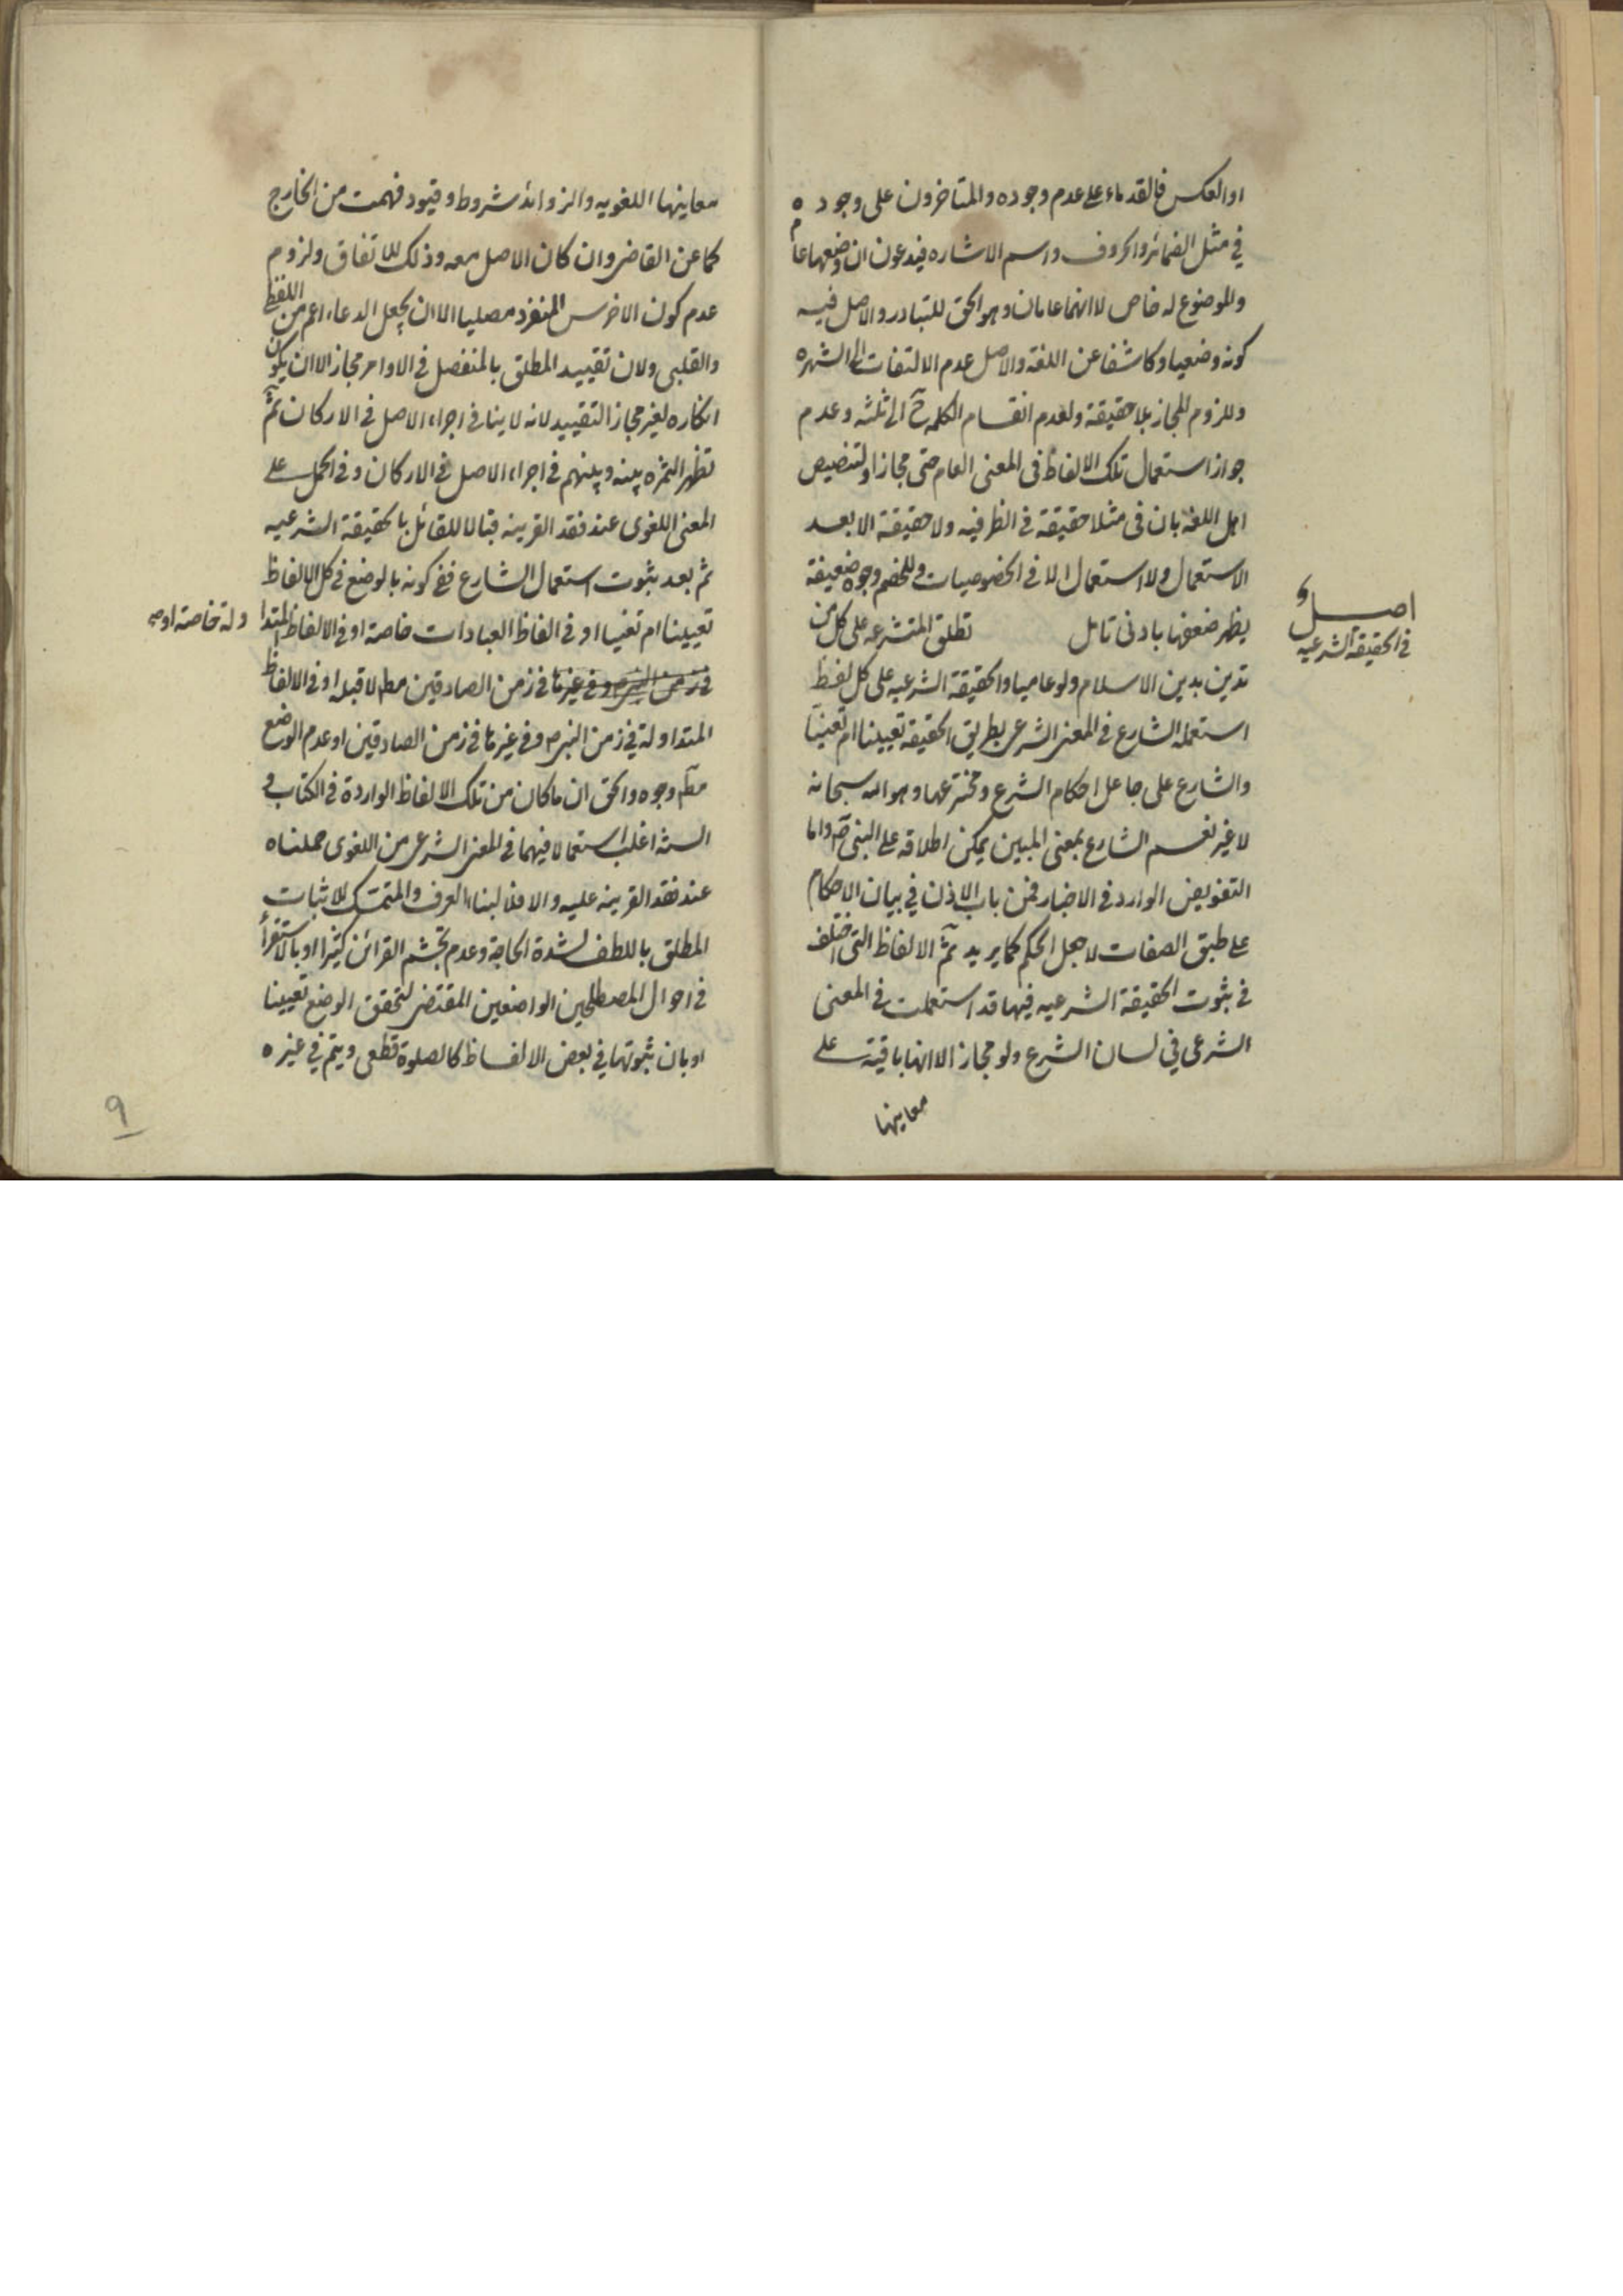 او العكس فالقدماء على عدم وجوده والمتاخرون على وجوده
في مثل الضمائر والحروف واسم الاشاره فيدعون ان وضعها عام
والموضوع له خاص لا انهما عامان وهو الحق للتبادر والاصل فيه
كونه وضعيا وكاشفا عن اللغة والاصل عدم الالتفات الى الشهره
وللزوم المجاز بلا حقيقة ولعدم انقسام الكلمه ح الى ثلثه وعدم
جواز استعمال تلك الالفاظ فى المعنى العام حتى مجازا ولتنصيص
اهل اللغة بان فى مثلا حقيقة فى الظرفيه ولا حقيقة الا بعد
الاستعمال ولا استعمال الا فى الخصوصيات وللخصم وجوه ضعيفة
يظهر ضعفها بادنى تامل تطلق المتشرعه على كل من
اصل
فى الحقيقة الشرعيه
تدين بدين الاسلام ولو عاميا والحقيقة الشرعيه على كل لفظ
استعمله الشارع فى المعنى الشرعى بطريق الحقيقة تعيينا ام تعينا
والشارع على جاعل احكام الشرع ومخترعها وهو الله سبحانه
لا غير نعم الشارع بمعنى المبين يمكن اطلاقه على النبى ص واما
التفويض الوارد فى الاخبار فمن باب الاذن في بيان الاحكام
على طبق الصفات لا جعل الحكم كما يريد ثم الالفاظ التى اختلف
فى ثبوت الحقيقة الشرعيه فيها قد استعملت فى المعنى
الشرعى في لسان الشرع ولو مجازا لا انها باقية على
معانيها
معانيها اللغويه والزوائد شروط وقيود فهمت من الخارج
كما عن القاضى وان كان الاصل معه وذلك للاتفاق ولزوم
عدم كون الاخرس المنفرد مصليا الا ان يجعل الدعاء اعم من اللفظى
والقلبى ولان تقييد المطلق بالمنفصل فى الاوامر مجاز الا ان يكون
انكاره لغير مجاز التقييد لانه لا ينافى اجراء الاصل فى الاركان ثم
تظهر الثمره بينه وبينهم فى اجراء الاصل فى الاركان وفى الحمل على
المعنى اللغوى عند فقد القرينه قبالا للقائل بالحقيقة الشرعيه
ثم بعد ثبوت استعمال الشارع ففى كونه بالوضع فى كل الالفاظ
تعيينا ام تعينا او فى الفاظ العبادات خاصة او فى الالفاظ المتداولة خاصة او
فى زمن النبى ص وفى غيرها فى زمن الصادقين مطم لا قبله او فى الالفاظ
المتداولة في زمن النبى ص وفى غيرها فى زمن الصادقين او عدم الوضع
مطم وجوه والحق ان ما كان من تلك الالفاظ الواردة فى الكتاب و
السنة اغلب استعمالا فيهما فى المعنى الشرعى من اللغوى حملناه
عند فقد القرينه عليه والا فلا لبناء العرف والمتمسك للاثبات
المطلق باللطف لشدة الحاجة وعدم تجشم القرائن كثيرا او بالاستقراء
فى احوال المصطلحين الواضعين المقتضى لتحقق الوضع تعيينا
او بان ثبوتها في بعض الالفاظ كالصلوة قطعى ويتم في غيره
٩